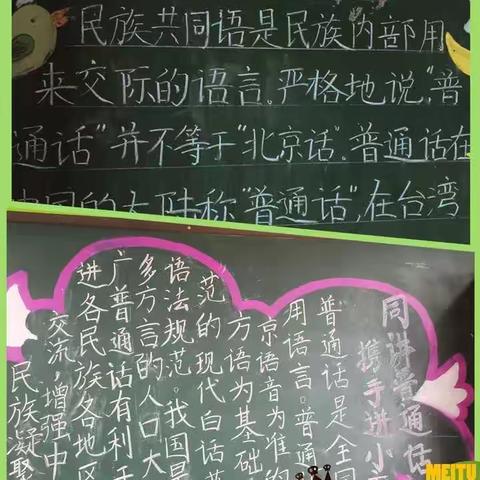 民族共同语是民族内部用
来交际的语言。严格地说,“普
通话”并不等于“北京话”。普通话在
中国的大陆称“普通话”,在台湾
同讲普通话
携手进小
普通话是全国
用语言。普通
京语音为准的
方语为基础
范的现代白话
语法规范。我国是
多方言的人口大
广普通话有利于
进各民族各地区
交流,增强中
民族凝聚
MEITU